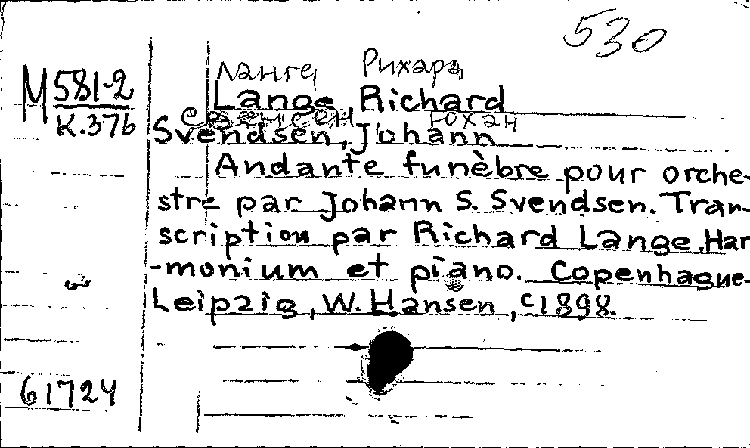 530
Ланге, Рихард
М 581-2
К.376
Lange, Richard
Свенсен, Юхан
Svendsen, Johann
Andante funèbre pour orche-
stre par Johann S. Svendsen. Tran-
scription par Richard Lange. Har
-monium et piano. Copenhague-
Leipzig, W. Hansen, c1898.
61724